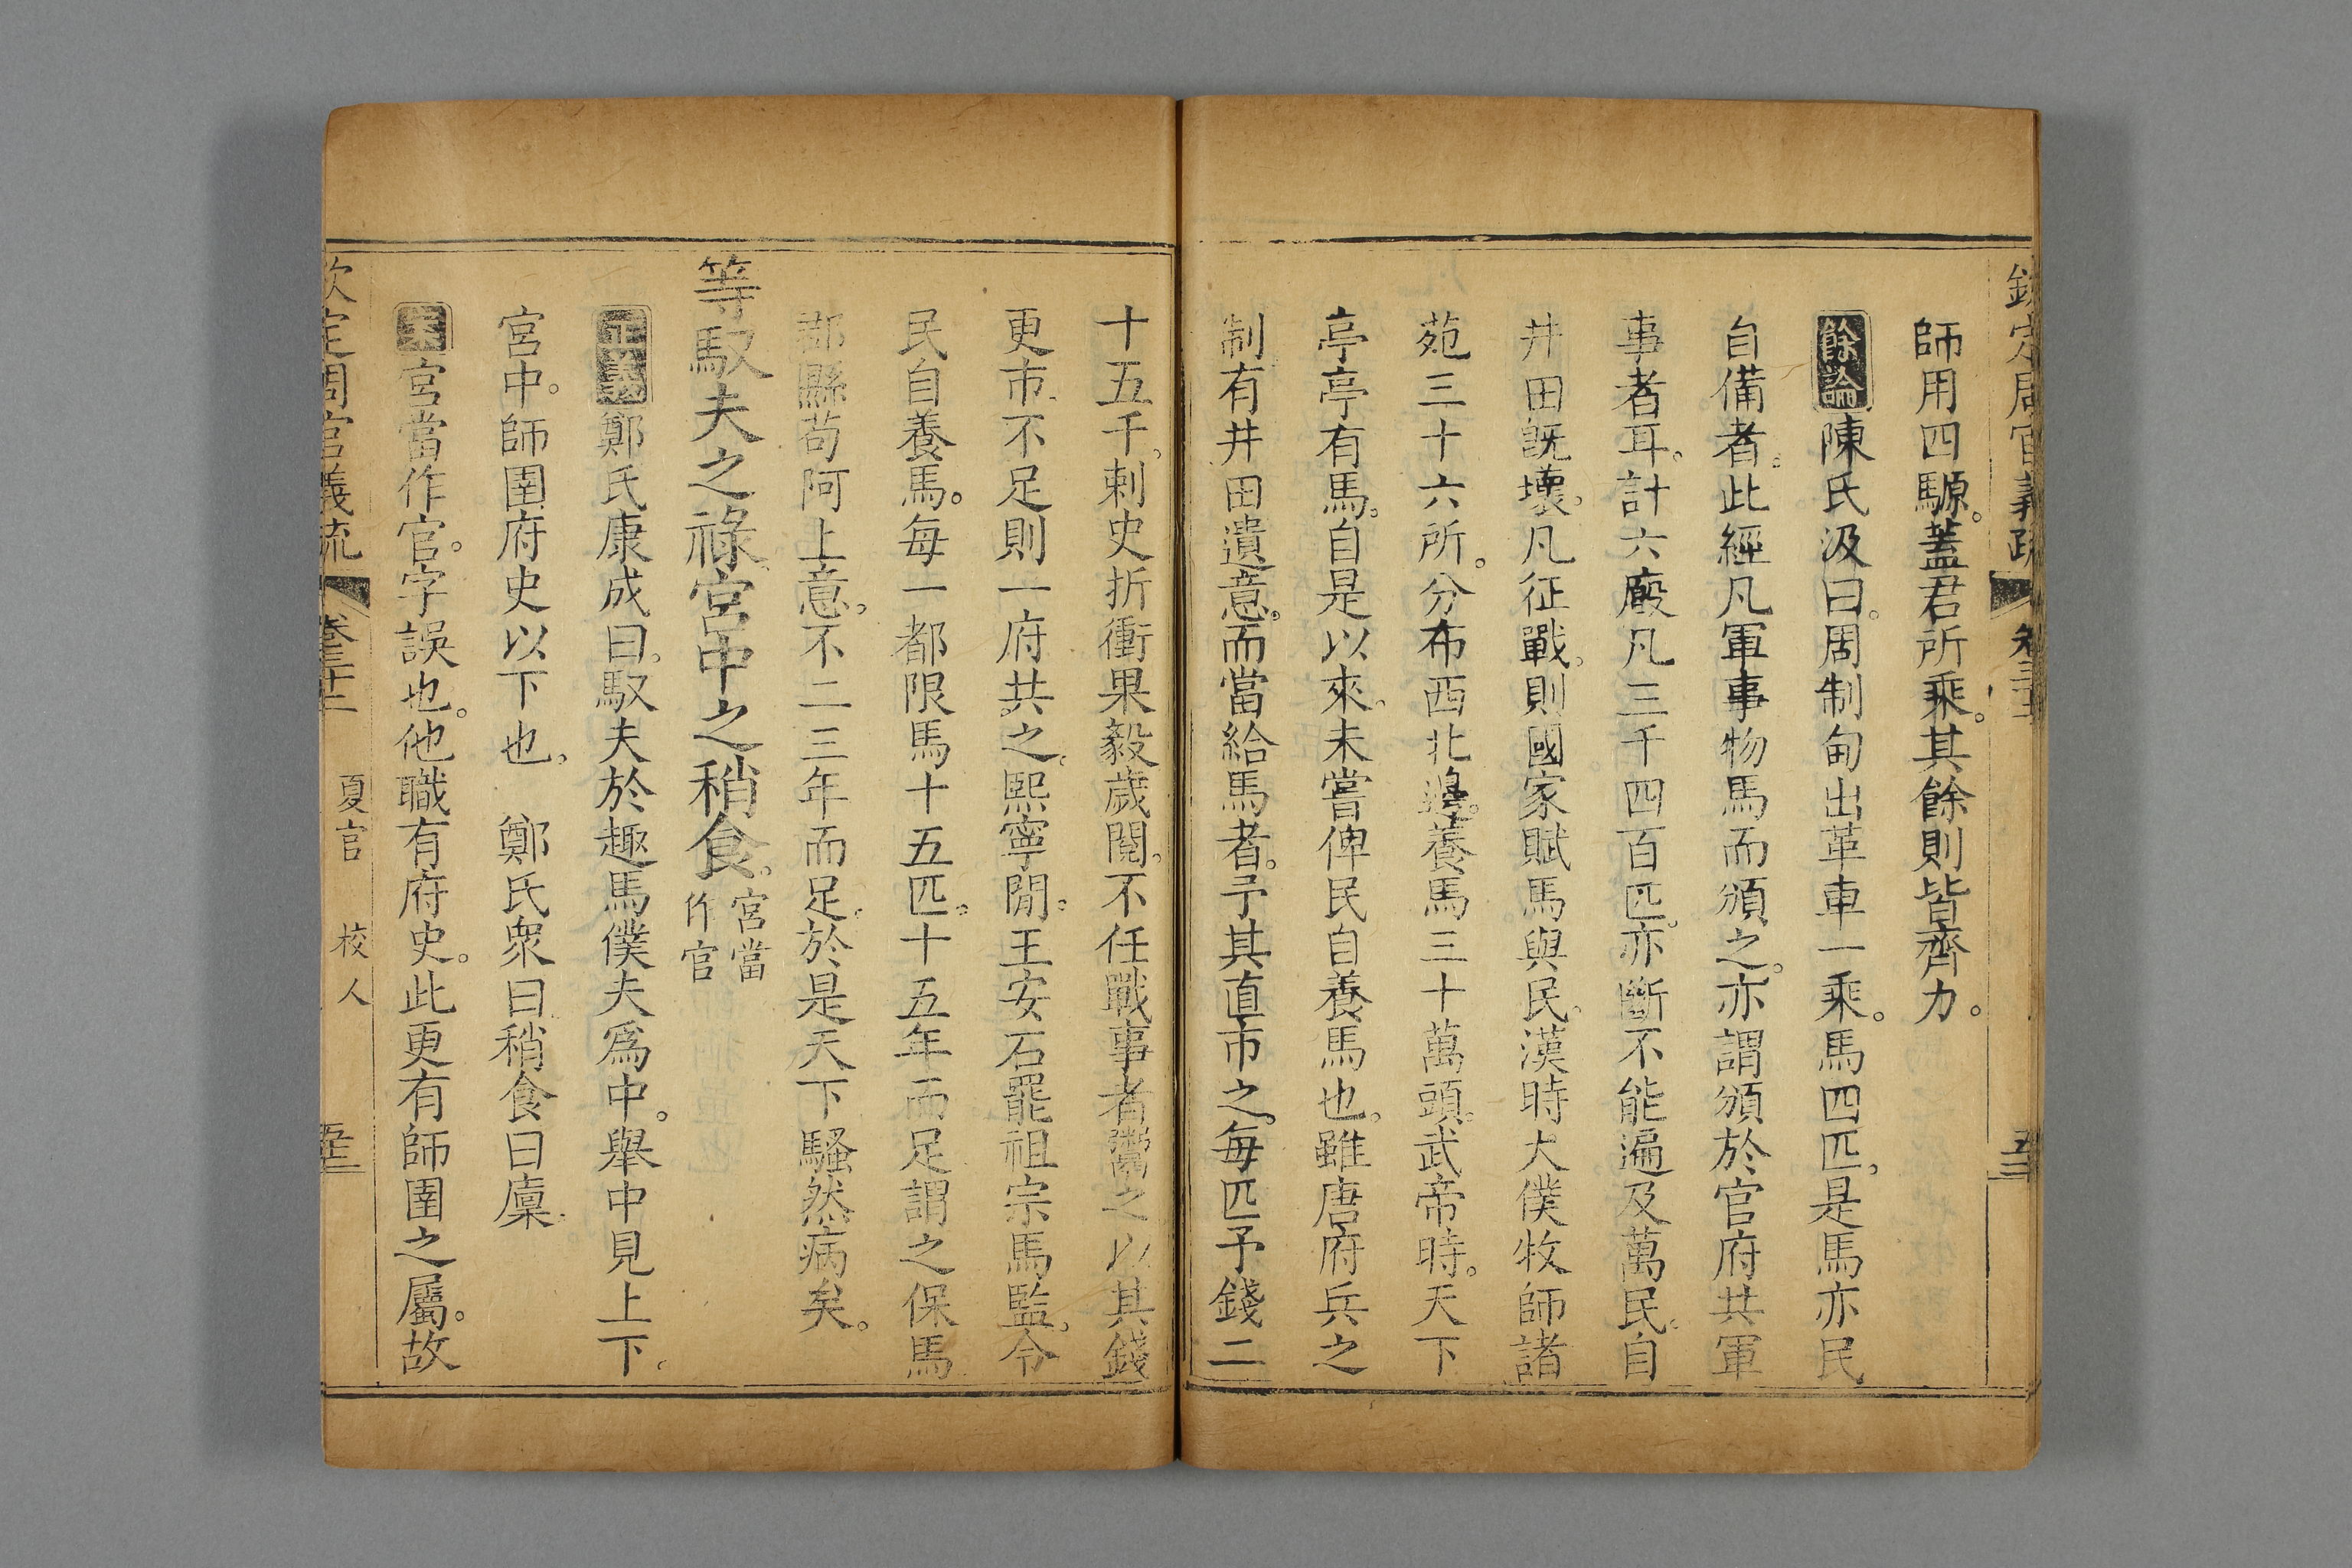 欽定周官義疏 卷三十二 五十二
師用四騵。蓋君所乘。其餘則皆齊力。
餘論陳氏汲曰。周制甸出革車一乘。馬四匹。是馬亦民
自備者。此經凡軍事物馬而頒之。亦謂頒於官府共軍
事者耳。計六廄凡三千四百匹。亦斷不能遍及萬民。自
井田旣壞。凡征戰。則國家賦馬與民。漢時大僕牧師諸
苑三十六所。分布西北邊。養馬三十萬頭。武帝時。天下
亭亭有馬。自是以來。未嘗俾民自養馬也。雖唐府兵之
制有井田遺意。而當給馬者。予其直市之。每匹予錢二
十五千。刺史折衝果毅歲閱。不任戰事者鬻之以其錢
更市。不足則一府共之。熙寧閒。王安石罷祖宗馬監。令
民自養馬。每一都限馬十五匹。十五年而足謂之保馬
郡縣苟阿上意。不二三年而足。於是天下騷然病矣。
等馭夫之祿。宮中之稍食。宮當作官
正義鄭氏康成曰。馭夫於趣馬僕夫爲中。舉中見上下。
宮中。師圉府史以下也。 鄭氏衆曰稍食曰廩。
案宮當作官。字誤也。他職有府史。此更有師圉之屬。故
欽定周官義疏 卷三十二 夏官 校人 五十二